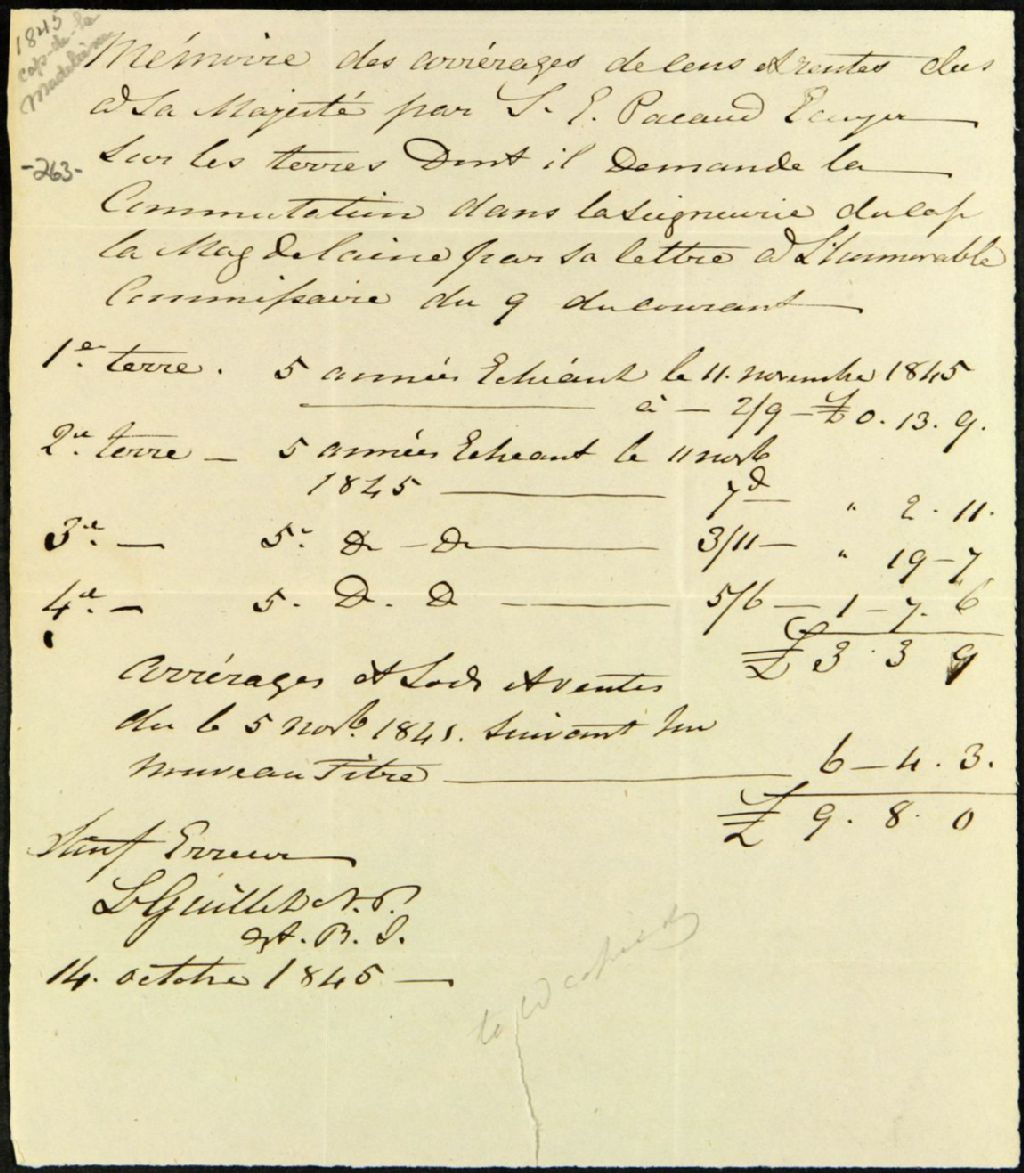 1845
cap-de-la
Madeleine
-263-
Mémoire des arriérages de Cens et rentes dus
à Sa Majesté par P. E. Pacaud Ecuyer
Sur les terres Dont il Demande la
Commutation dans la Seigneurie du Cap
la Magdelaine par sa lettre à L'honnorable
Commissaire du 9 du courant
1er terre. 5 années Echéant le 11. novembre 1845
à — 2/9 — £ 0. 13. 9.
2e. terre — 5 années Echeant le 11 novb
1845 — 7d — " 2. 11.
3e. — 5. Do — Do — 3/11 — " 19 - 7
4e. — 5. D. D — 5/6 — 1 - 7. 6
£ 3. 3 9
arriérages et Lods et ventes
du le 5 novb. 1841. suivant Un
nouveau Titre — 6 - 4. 3.
£ 9. 8. 0
Sauf Erreur
L Guillet N. P.
A. R. S.
14. octobre 1845 —
to be copied